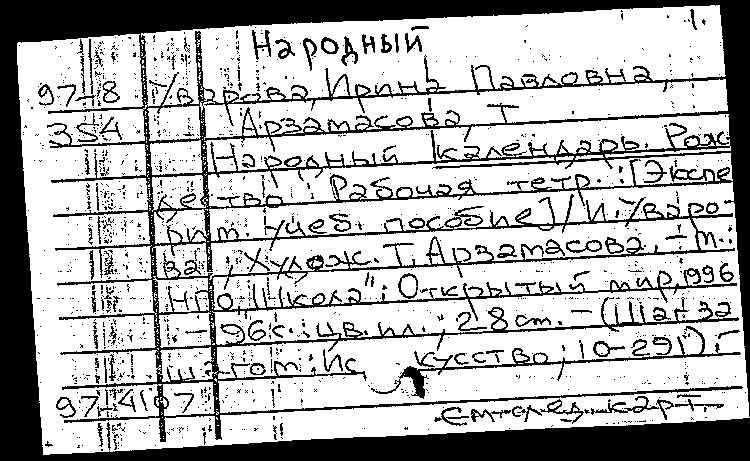 1.
Народный
97-8 Уварова, Ирина Павловна,
354 Арзамасова, Т
Народный календарь. Рож
дество : Рабочая тетр. : [Экспе
рим. учеб. пособие] / И. Уваро-
ва ; Худож. Т. Арзамасова. – М.:
НПО "Школа" : Открытый мир, 1996
– 96с. : цв. ил. ; 28 см. – (Шаг за
шагом : Ис кусство ; 10-291) :
97-4107
См. след. карт.